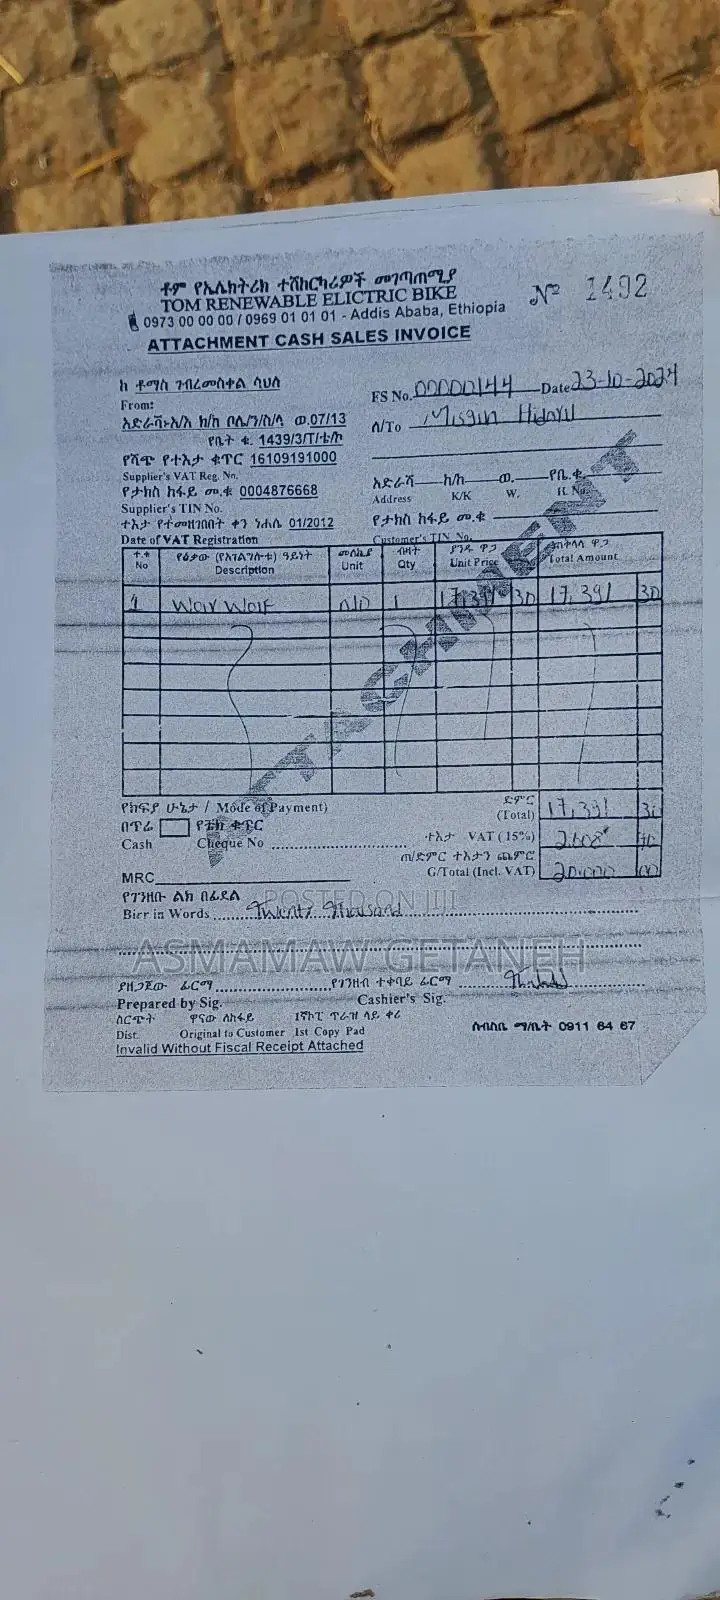 ቶም የኤሌክትሪክ ተሽከርካሪዎች መገጣጠሚያ
TOM RENEWABLE ELICTRIC BIKE
0973 00 00 00 / 0969 01 01 01 - Addis Ababa, Ethiopia
Nº 1492
ATTACHMENT CASH SALES INVOICE
ከ ቶማስ ገብረመስቀል ሳህለ
From:
FS No. 00000144 Date 23-10-2024
ለ/To Misgin
አድራሻ፡አ/አ ክ/ከ ቦሌ/ን/ስ/ላ ወ.07/13
የቤት ቁ. 1439/3/T/ቴ/ኮ
የሻጭ የተእታ ቁጥር 16109191000
Supplier's VAT Reg. No.
አድራሻ ክ/ከ ወ. የቤ.ቁ.
Address K/K W. H. No.
የታክስ ከፋይ መ.ቁ 0004876668
Supplier's TIN No.
የታክስ ከፋይ መ.ቁ
Customer's TIN No.
ተእታ የተመዘገበበት ቀን ነሐሴ 01/2012
Date of VAT Registration
ተ.ቁ የዕቃው (የአገልግሎቱ) ዓይነት መለኪያ ብዛት ያንዱ ዋጋ ጠቅላላ ዋጋ
No Description Unit Qty Unit Price Total Amount
1 1 17,391 30 17,391 30
ATTACHMENT
የክፍያ ሁኔታ / Mode of Payment)
ድምር
(Total) 17,391 30
በጥሬ የቼክ ቁጥር
Cash Cheque No
ተእታ VAT (15%) 2608 70
ጠ/ድምር ተእታን ጨምሮ
G/Total (Incl. VAT) 20,000 00
MRC
የገንዘቡ ልክ በፊደል
Birr in Words Twenty Thousand
POSTED ON JIJI
ASMAMAW GETANEH
ያዘጋጀው ፊርማ የገንዘብ ተቀባይ ፊርማ
Prepared by Sig. Cashier's Sig.
ስርጭት ዋናው ለከፋይ 1ኛኮፒ ጥራዝ ላይ ቀሪ
Dist. Original to Customer 1st Copy Pad
Invalid Without Fiscal Receipt Attached
ሱብስቤ ማ/ቤት 0911 64 67